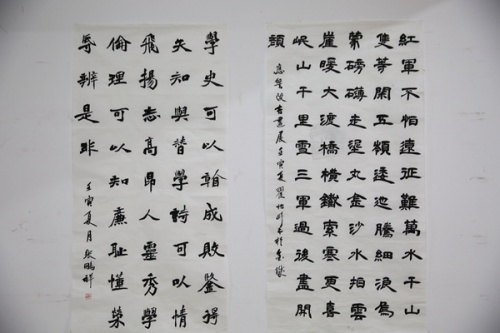 紅軍不怕遠征難萬水千山
隻等閑五嶺逶迤騰細浪烏
蒙磅礴走泥丸金沙水拍雲
崖暖大渡橋橫鐵索寒更喜
岷山千里雪三軍過後盡開
顏
書展壬寅夏
學史可以看成敗鑒得
失知興替學詩可以情
飛揚志高昂人靈秀學
倫理可以知廉恥懂榮
辱辨是非
壬寅夏月張鵬祥